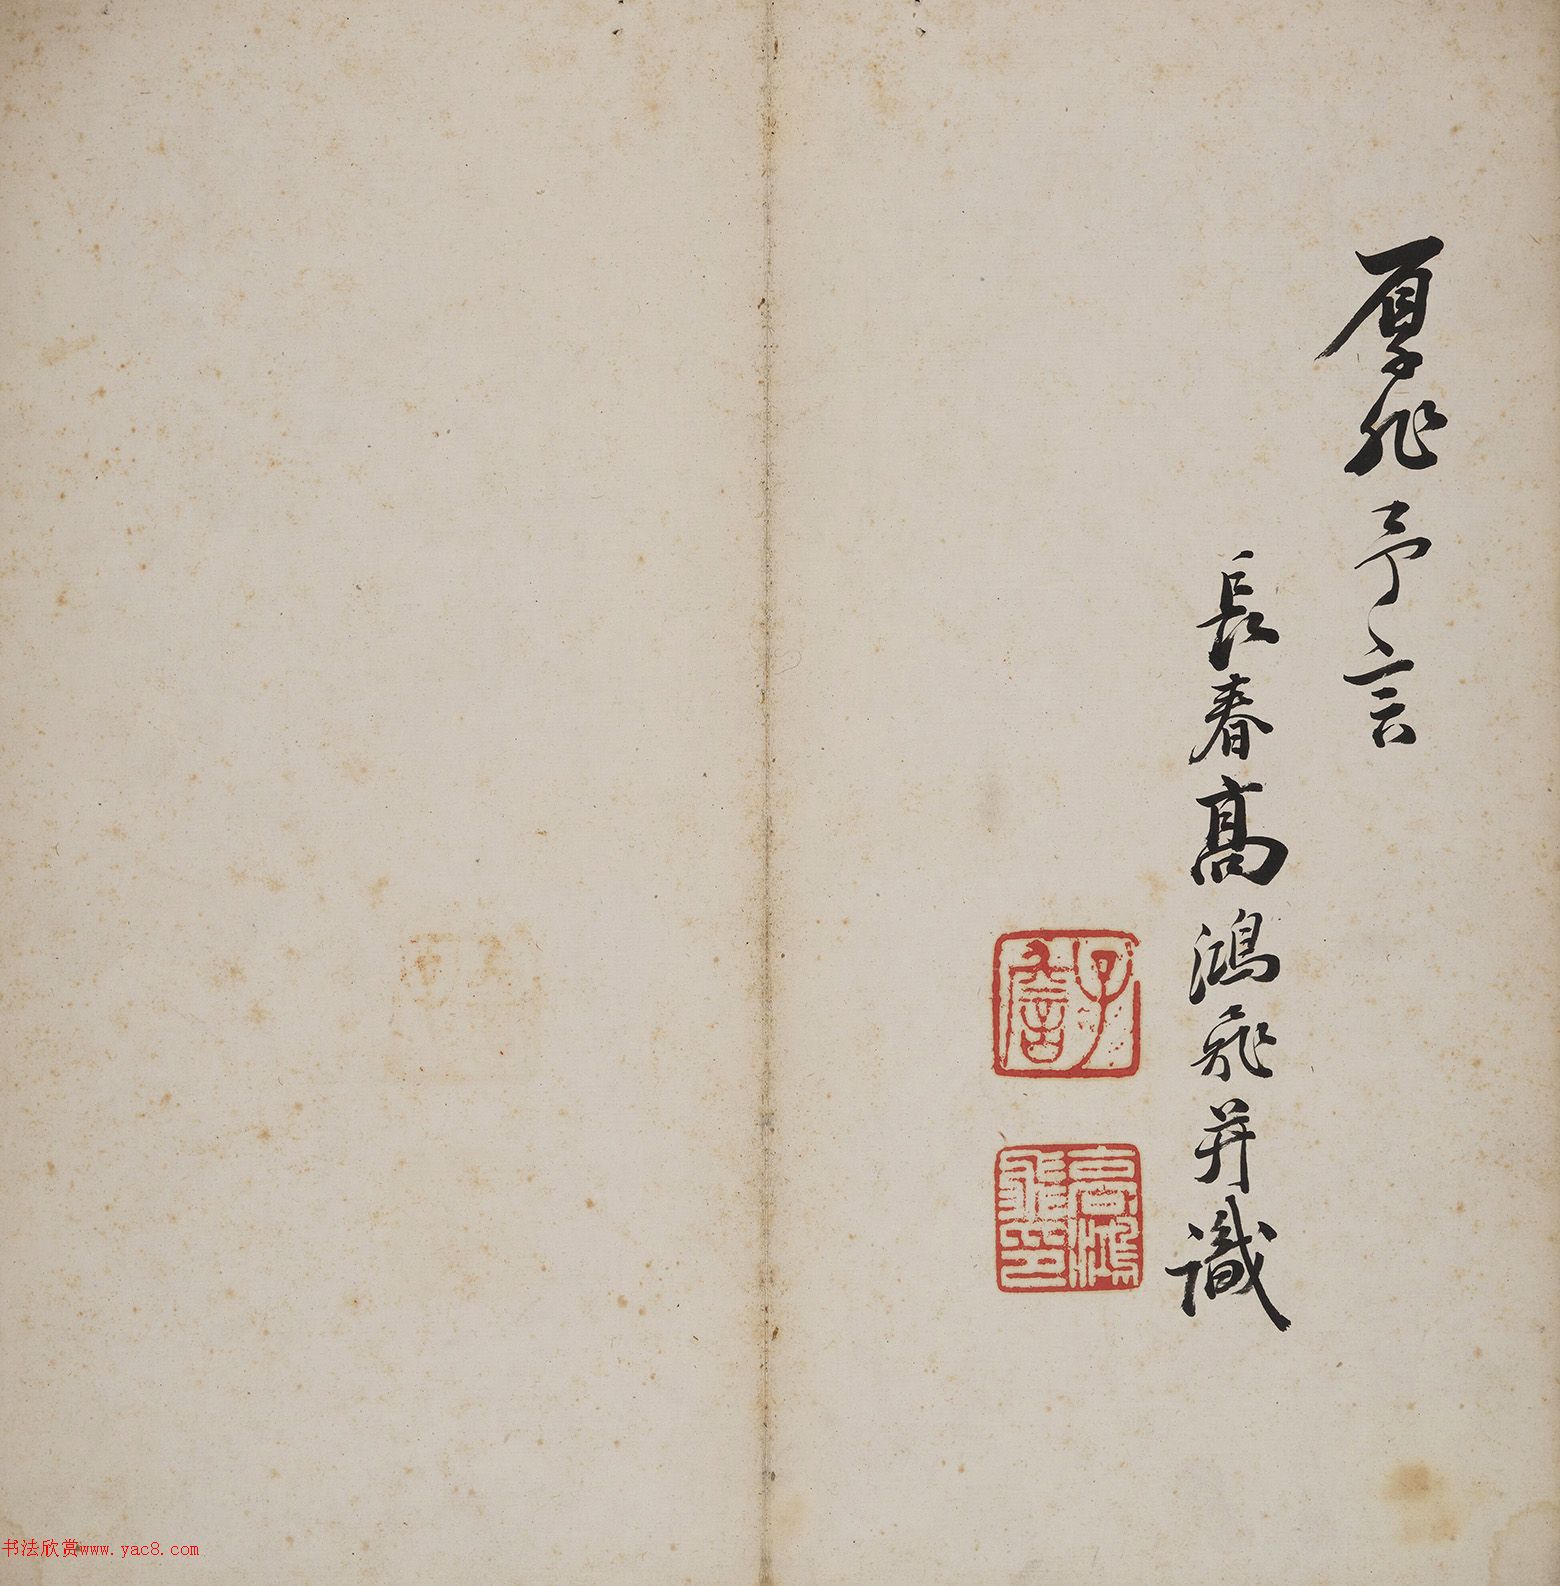 厚非予言
長春高鴻飛并識
子詹
高鴻飛印
书法欣赏www.yac8.com